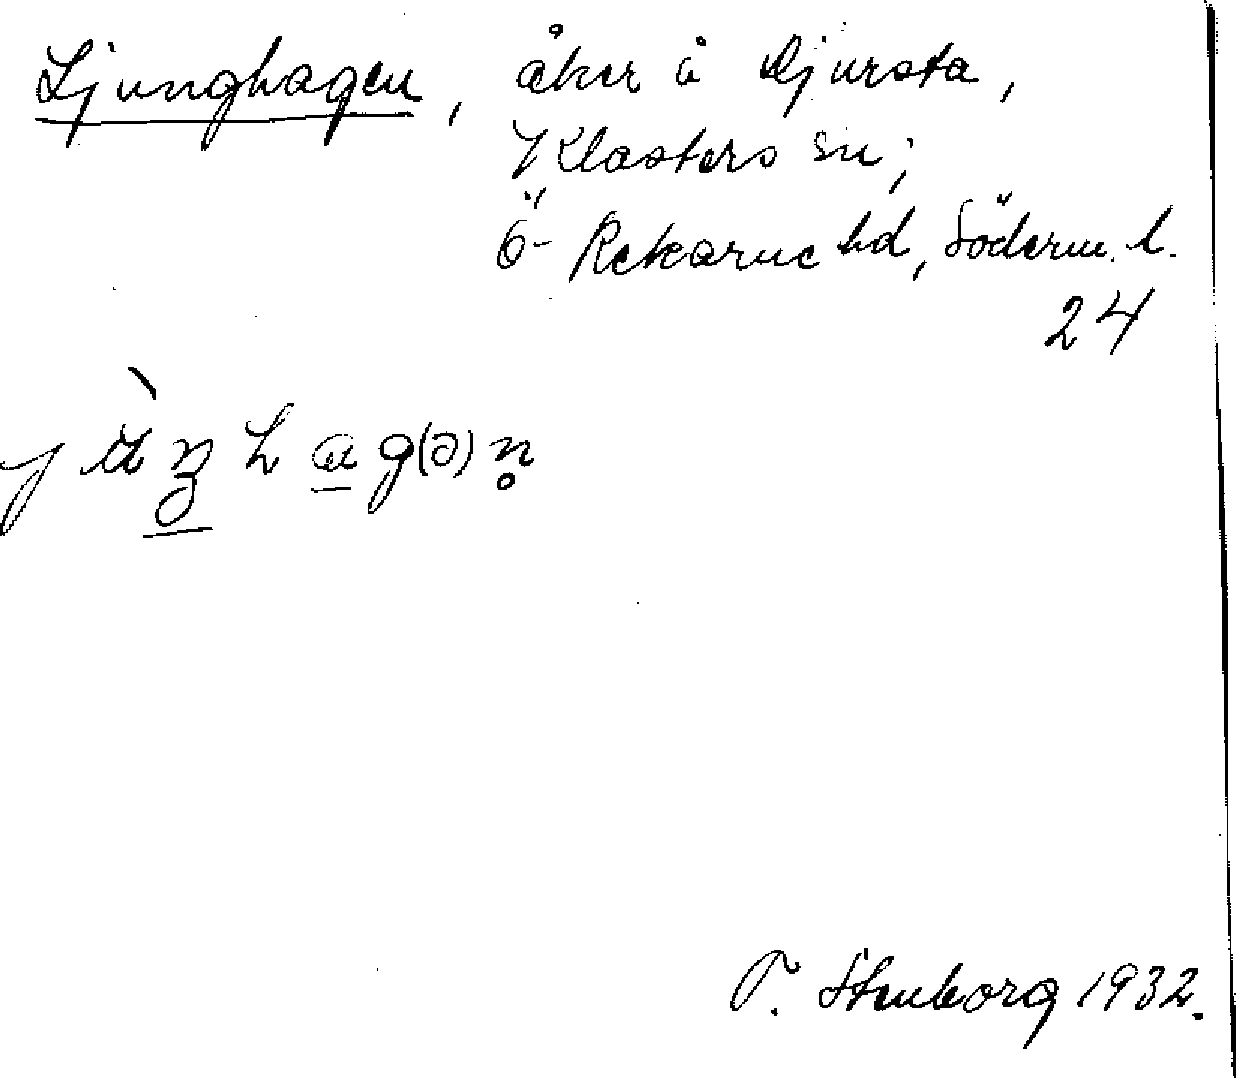 Ljunghagen, åker å Djursta,
Klosters sn;
Ö- Rekarne hd, Söderm. l.
24
T. Stenborg 1932.